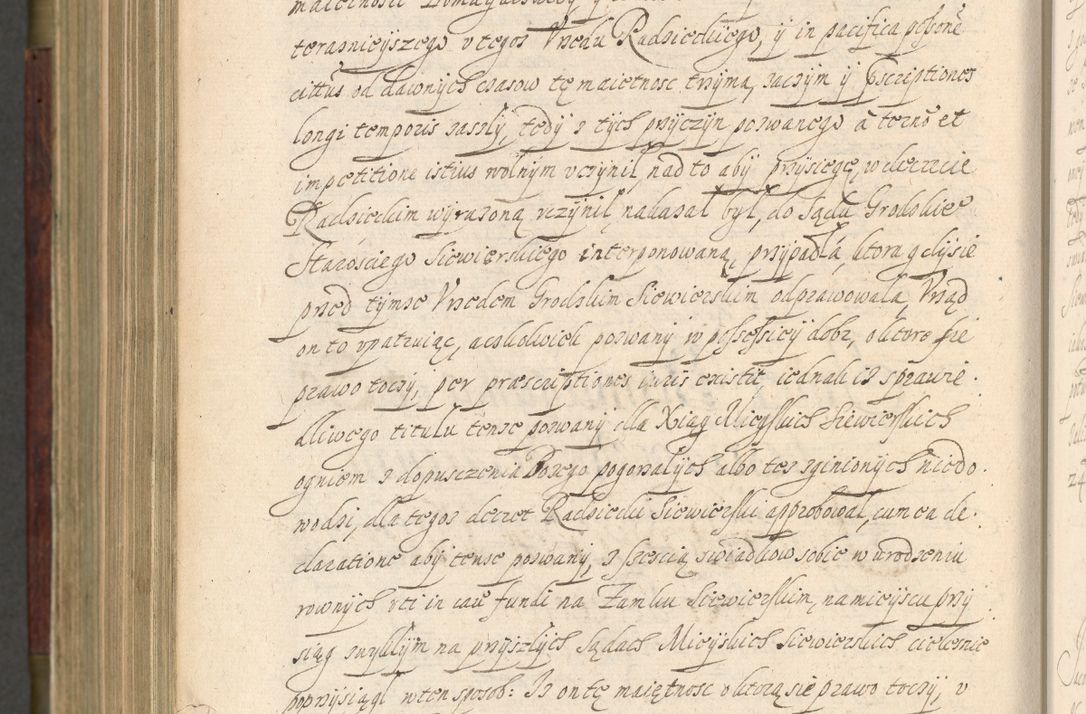 teraznieyszego v tegoz Vrzędu Radzieckiego, ÿ in pacifica poſsone
cittus od dawnÿch czasow tę maiętnosc trzÿma, zaczÿm ÿ Pscriptiones
longi temporis zaszlÿ, tedÿ z tÿch przÿczÿn pozwanego à termo et
impetitione istius wolnÿm vczÿnil, nad to abÿ przÿsięgę, w decrecie
Radzieckim wÿrazoną vczÿnil, nakazal bÿl, do Sądu Grodskie°
Starosciego Siewierskiego interponowaną, przÿpadla, ktora gdÿ sie
przed tÿmze Vrzedem Grodskim Siewierskim odprawowala, Vrząd
on to vpatruiąc, a cokolwiek pozwanÿ w poſseſsiey dobr, o ktore sie
prawo toczÿ, per præscriptiones iuris existit, iednak iz sprawie
dliwego titulu tenze pozwanÿ dla Xiąg Mieyskich Siewierskich
ogniem z dopuszczenia Bozego pogorzalÿch albo tez zginionÿch niedo
wodzi, dla tegoz decret Radziecki Siewierski approbowal, cum ea de
claratione abÿ tenze pozwanÿ, z szescią swiadkow sobie w urodzeniu
rownÿch vti in cau fundi na Zamku Siewierskim, na mieÿscu przÿ
siąg zwÿklÿm na przÿszlÿch Sądach Mieÿskich Siewierskich cielesnie
poprzÿsiągl w ten sposob: Iz on tę maiętnosc o ktorą sie prawo toczÿ, v